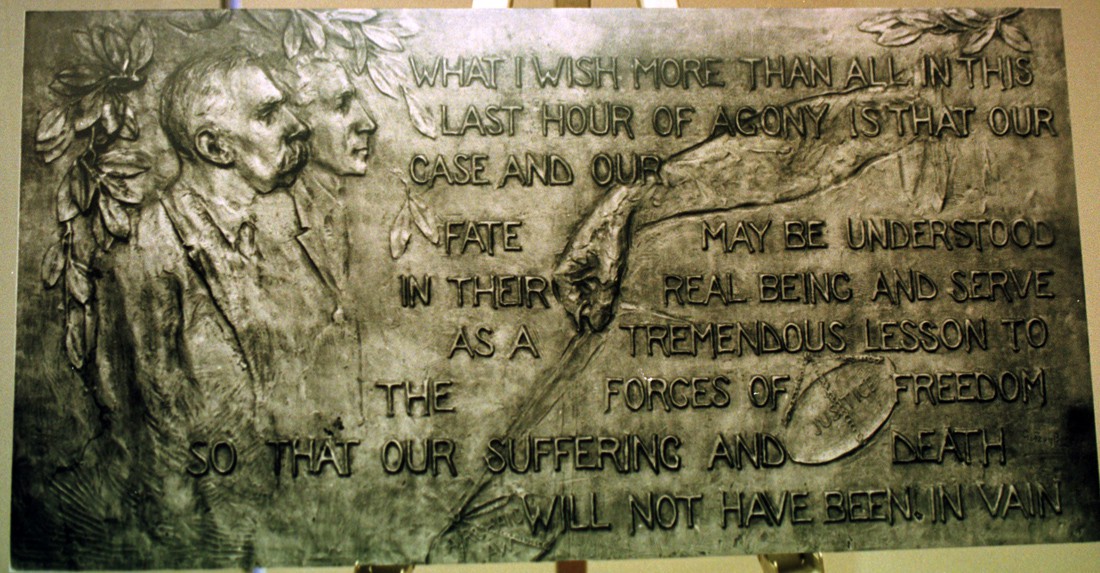 WHAT I WISH MORE THAN ALL IN THIS
LAST HOUR OF AGONY IS THAT OUR
CASE AND OUR
FATE MAY BE UNDERSTOOD
IN THEIR REAL BEING AND SERVE
AS A TREMENDOUS LESSON TO
THE FORCES OF FREEDOM
JUSTICE
SO THAT OUR SUFFERING AND DEATH
WILL NOT HAVE BEEN. IN VAIN